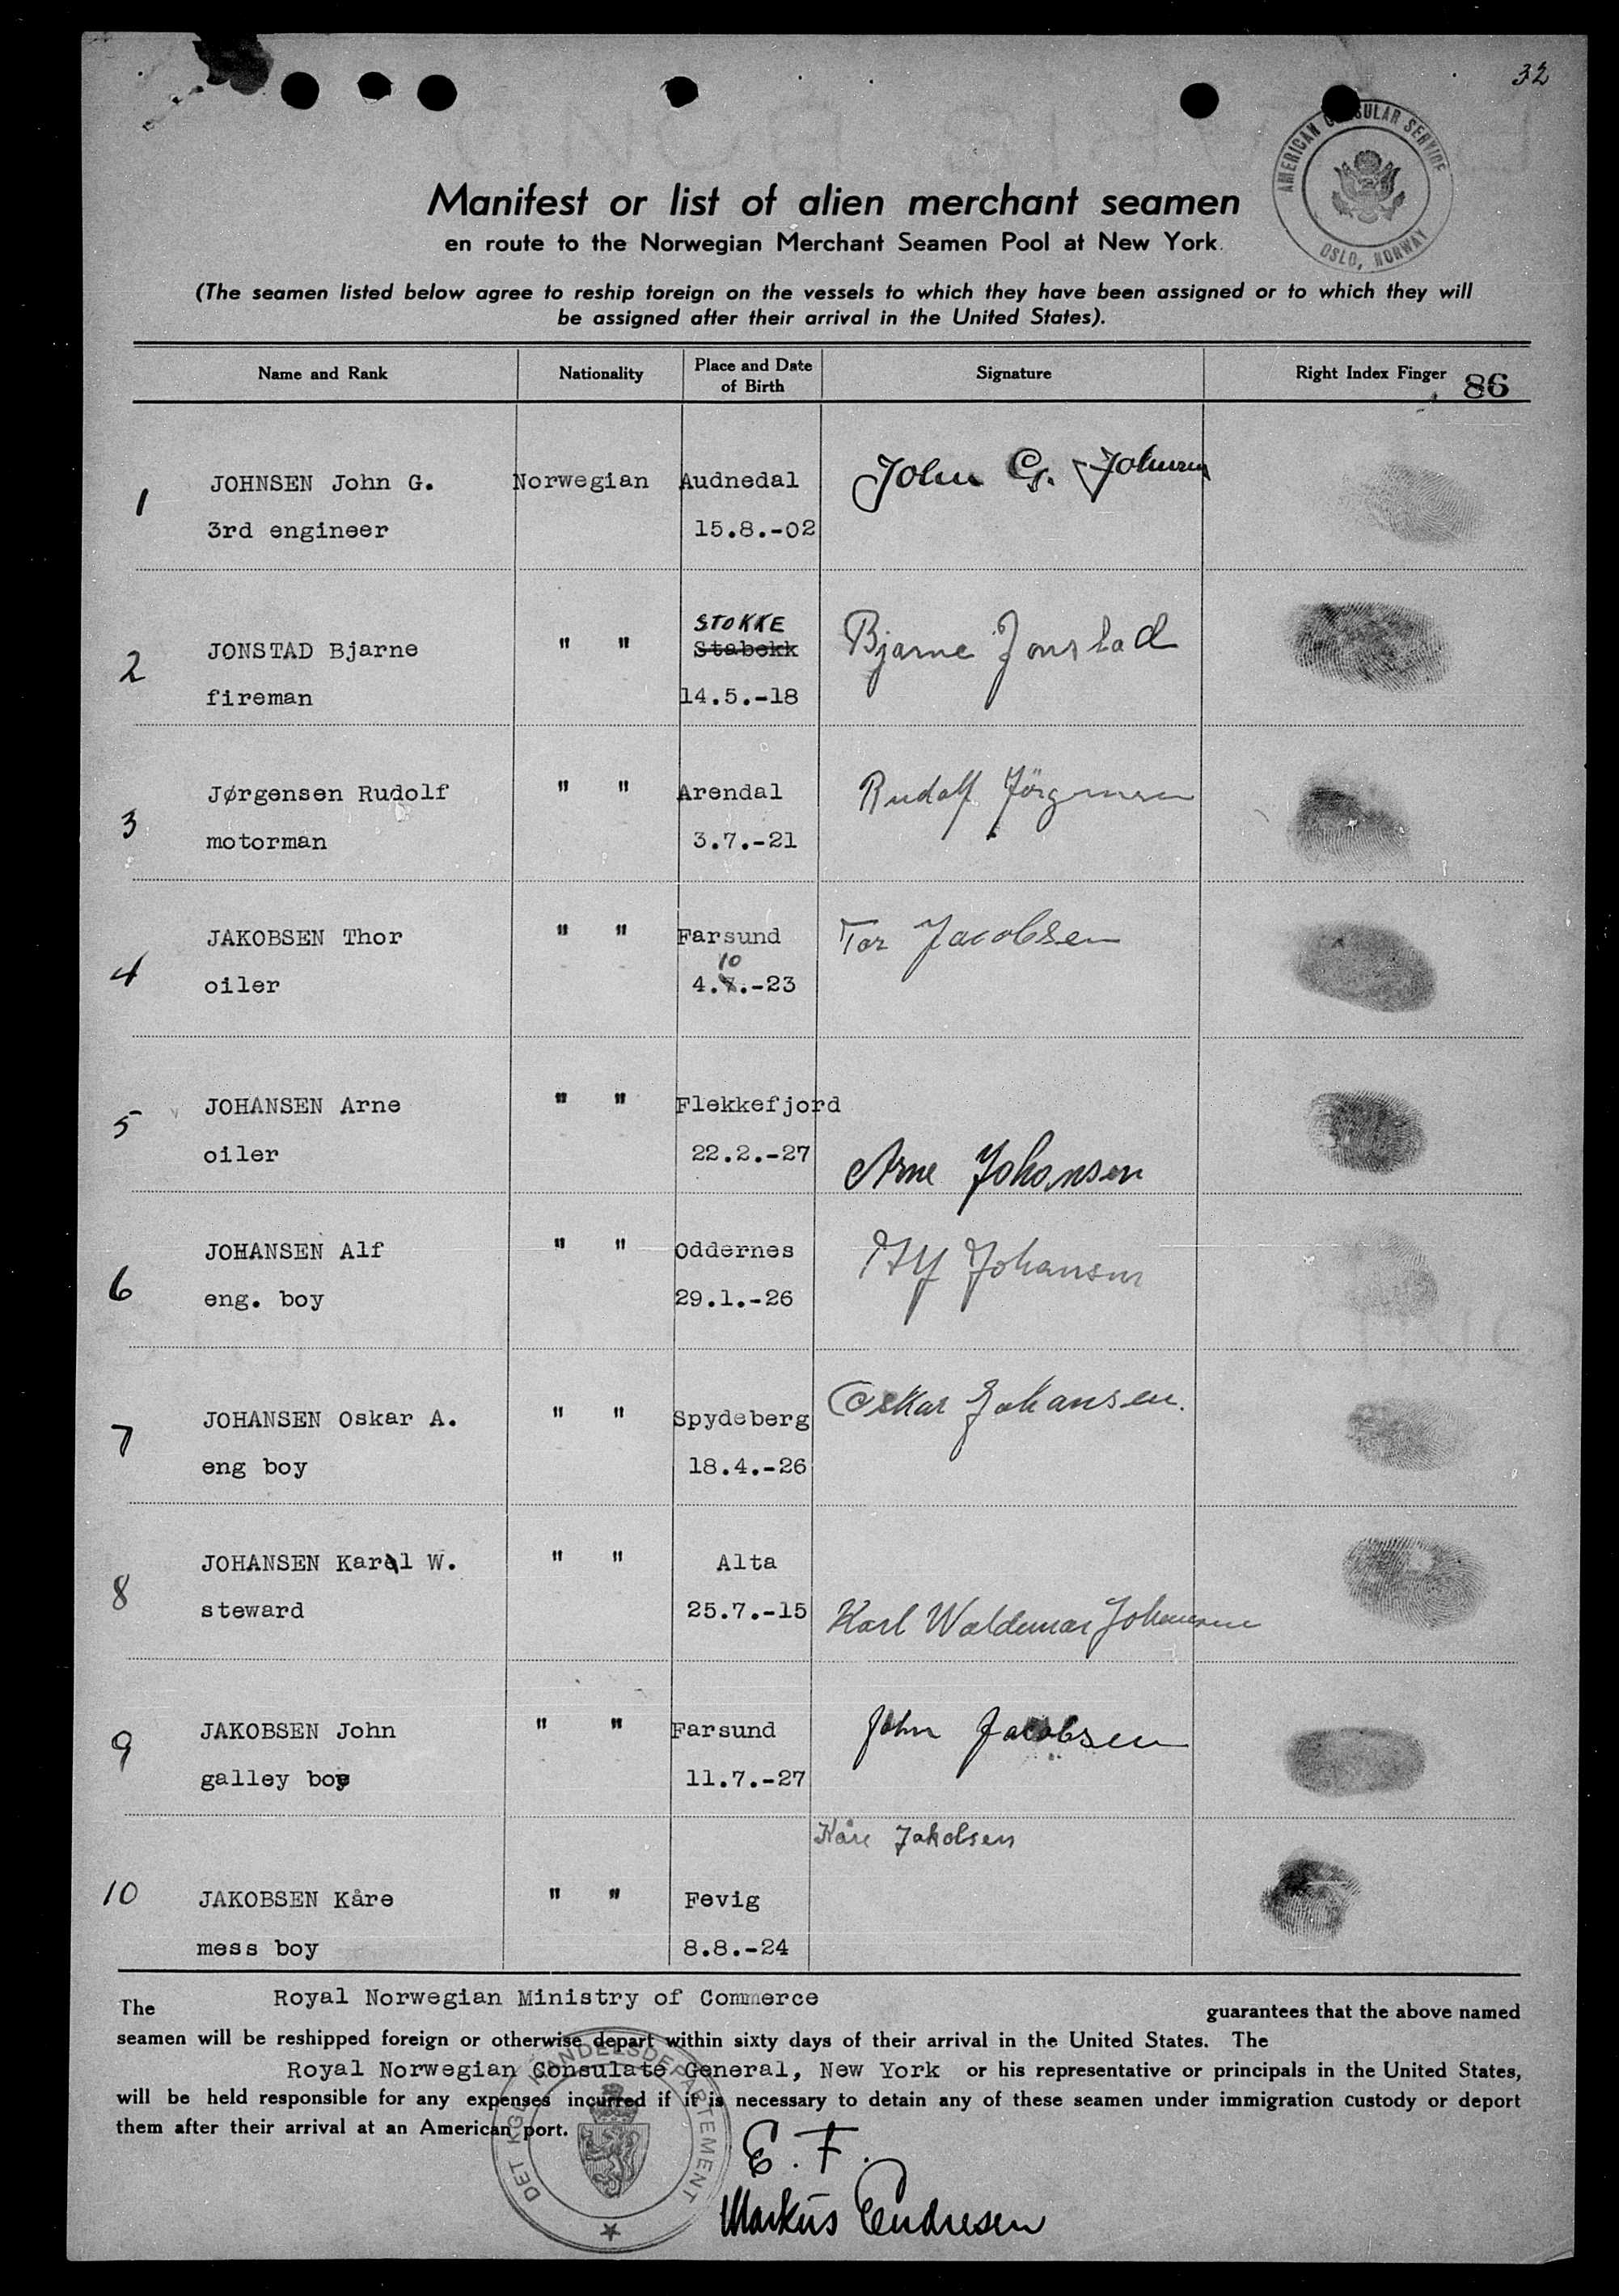 32
AMERICAN CONSULAR SERVICE
OSLO, NORWAY
Manifest or list of alien merchant seamen
en route to the Norwegian Merchant Seamen Pool at New York.
(The seamen listed below agree to reship foreign on the vessels to which they have been assigned or to which they will
be assigned after their arrival in the United States).
Name and Rank Nationality Place and Date of Birth Signature Right Index Finger 86
1 JOHNSEN John G. Norwegian Audnedal John G. Johnsen
3rd engineer 15.8.-02
STOKKE
2 JONSTAD Bjarne " " Stabekk Bjarne Jonstad
fireman 14.5.-18
3 Jørgensen Rudolf " " Arendal Rudolf Jörgensen
motorman 3.7.-21
4 JAKOBSEN Thor " " Farsund Tor Jacobsen
10
oiler 4.7.-23
5 JOHANSEN Arne " " Flekkefjord
oiler 22.2.-27 Arne Johansen
6 JOHANSEN Alf " " Oddernes Alf Johansen
eng. boy 29.1.-26
7 JOHANSEN Oskar A. " " Spydeberg Oskar Johansen.
eng boy 18.4.-26
8 JOHANSEN Karl W. " " Alta
steward 25.7.-15 Karl Waldemar Johansen
9 JAKOBSEN John " " Farsund John Jacobsen
galley boy 11.7.-27
Kåre Jakobsen
10 JAKOBSEN Kåre " " Fevig
mess boy 8.8.-24
The Royal Norwegian Ministry of Commerce guarantees that the above named
seamen will be reshipped foreign or otherwise depart within sixty days of their arrival in the United States. The
Royal Norwegian Consulate General, New York or his representative or principals in the United States,
will be held responsible for any expenses incurred if it is necessary to detain any of these seamen under immigration custody or deport
them after their arrival at an American port.
DET KGL HANDELSDEPARTEMENT
E. F.
Markus Endresen